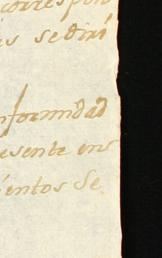 correspon
is sediri
nformidad
esente ens
ientos Se